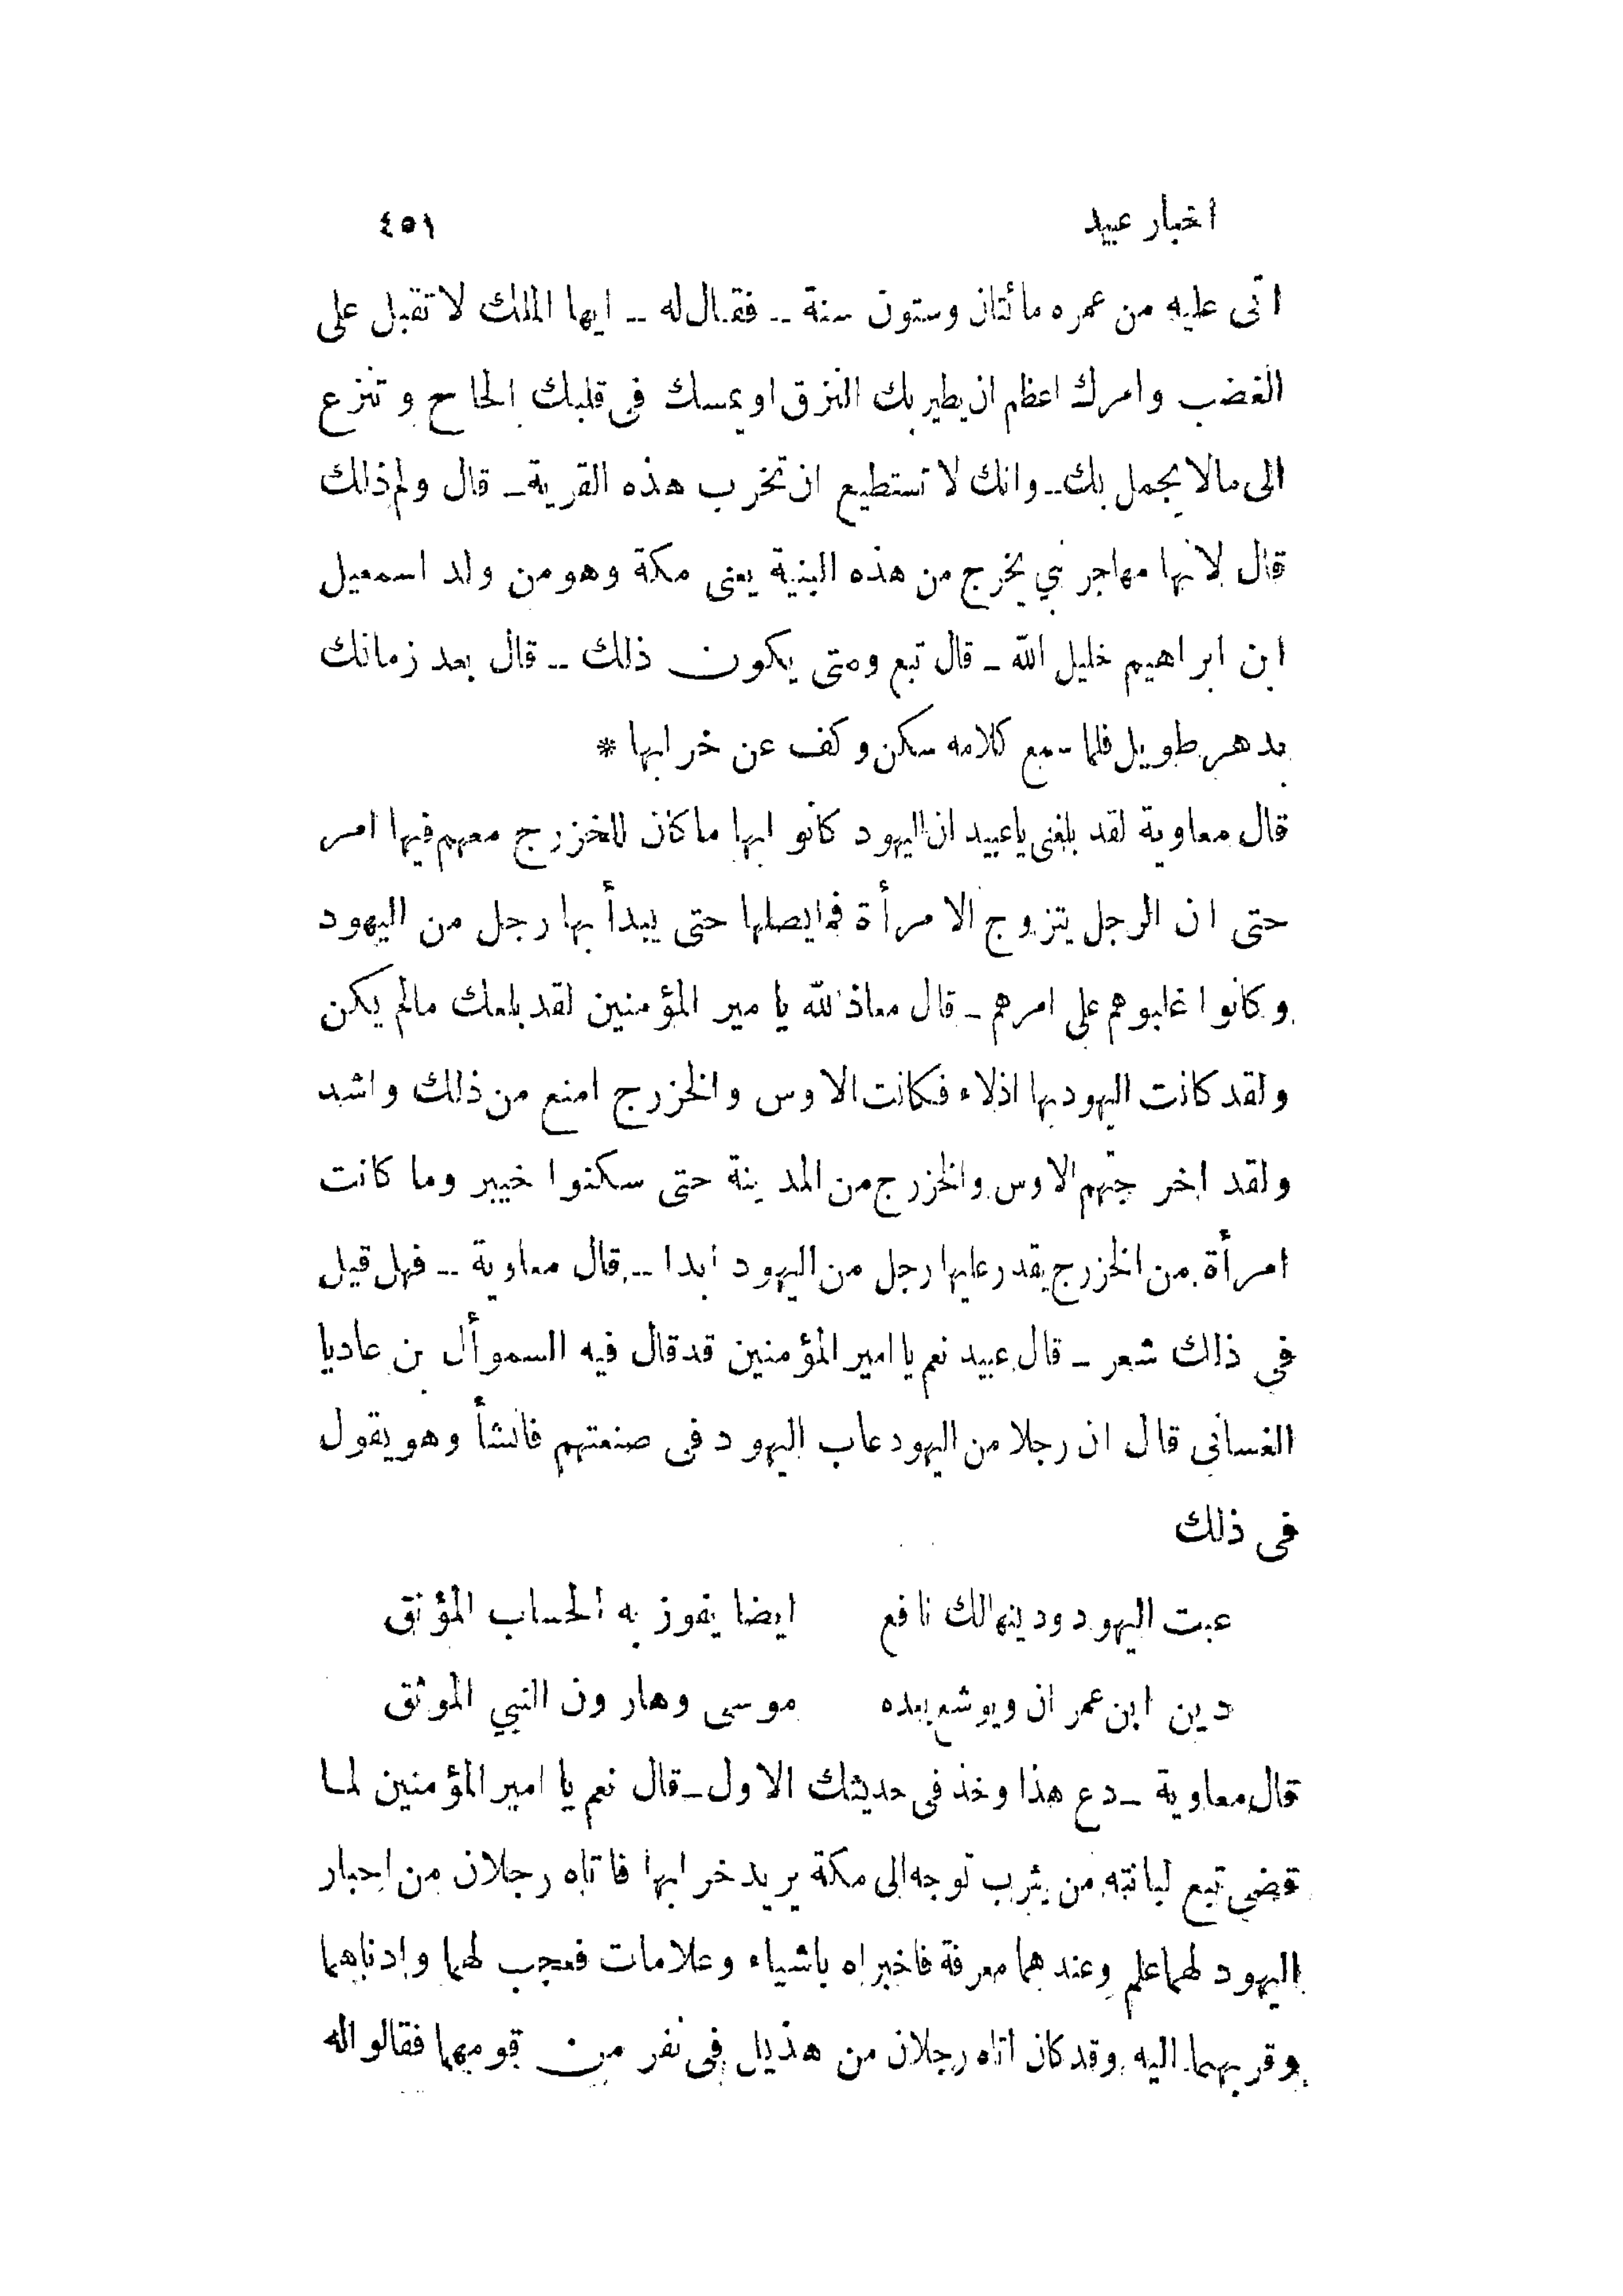 اخبار عبيد ٤٥١
اتى عليه من عمره مائتان وستون سنة -- فقال له -- ايها الملك لا تقبل على
الغضب وامرك اعظم ان يطير بك النزق او يمسك فى قلبك الحاح وتنزع
الى مالا يجمل بك -- وانك لا تستطيع ان تخرب هذه القرية - قال ولم ذلك
قال لانها مهاجر نبي يخرج من هذه البنية يعنى مكة وهو من ولد اسمعيل
ابن ابراهيم خليل الله - قال تبع ومتى يكون ذلك -- قال بعد زمانك
بدهر طويل فلما سمع كلامه سكن وكف عن خرابها *
قال معاوية لقد بلغنى يا عبيد ان اليهود كانوا بها ما كان للخزرج معهم فيها امر
حتى ان الرجل يتزوج الامرأة فما يصلها حتى يبدأ بها رجل من اليهود
وكانوا غلبوهم على امرهم - قال معاذ الله يا مير المؤمنين لقد بلعك مالم يكن
ولقد كانت اليهود بها اذلاء فكانت الاوس والخزرج امنع من ذلك واشد
ولقد اخرجتهم الاوس والخزرج من المدينة حتى سكنوا خيبر وما كانت
امرأة من الخزرج يقدر عليها رجل من اليهود ابدا -- قال معاوية -- فهل قيل
فى ذلك شعر - قال عبيد نعم يا امير المؤمنين قد قال فيه السموأل بن عاديا
الغسانى قال ان رجلا من اليهود عاب اليهود فى صنعتهم فانشأ وهو يقول
فى ذلك
عبت اليهود ودينها لك نافع ايضا يفوز به الحساب المؤنق
دين ابن عمران ويوشع بعده موسى وهارون النبي الموثق
قال معاوية - دع هذا وخذ فى حديثك الاول - قال نعم يا امير المؤمنين لما
قضى تبع لبانته من يثرب توجه الى مكة يريد خرابها فاتاه رجلان من احبار
اليهود لهما علم وعندهما معرفة فاخبراه باشياء وعلامات فعجب لهما وادناهما
وقربهما اليه وقد كان اتاه رجلان من هذيل فى نفر من قومهما فقالوا له